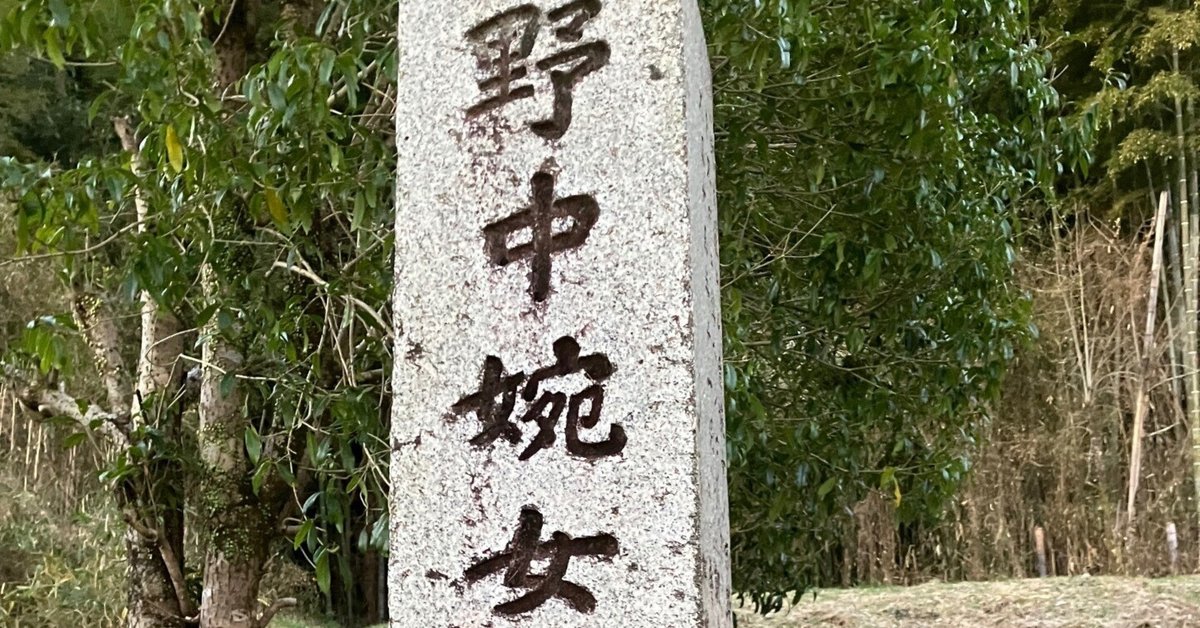 野中婉女